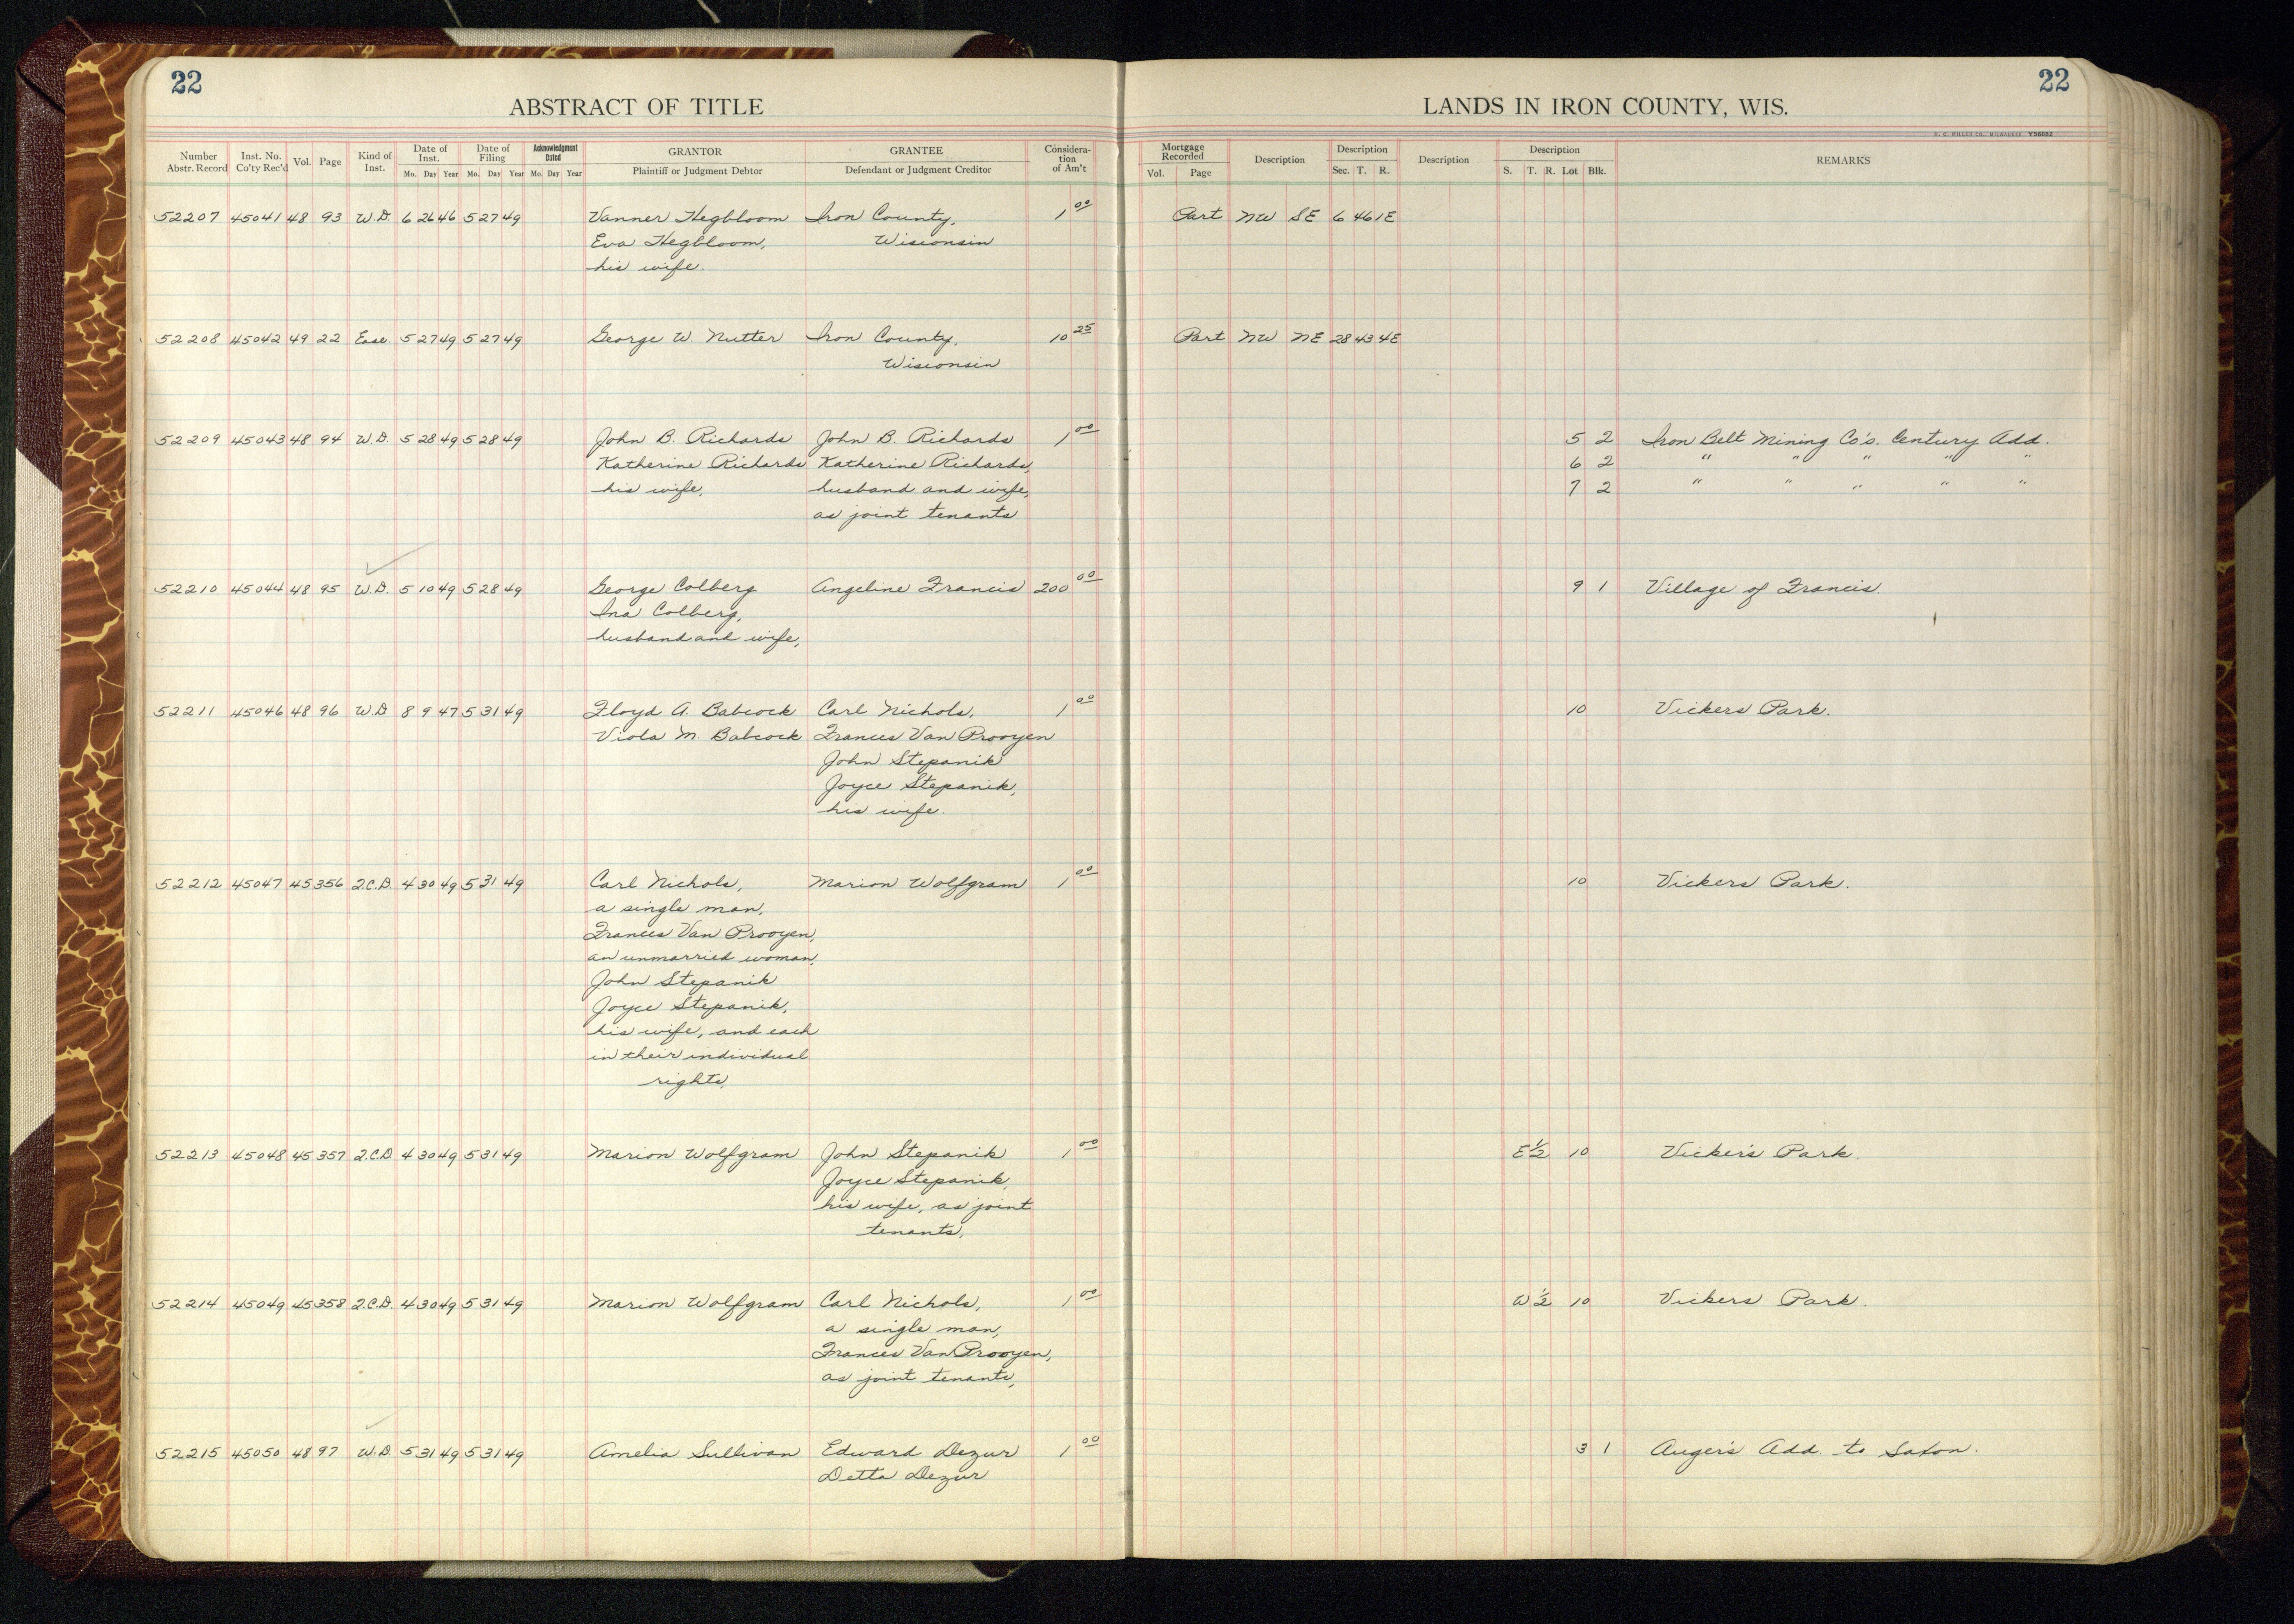 22
22
ABSTRACT OF TITLE
LANDS IN IRON COUNTY, WIS.
H. C. MILLER CO., MILWAUKEE
Number Abstr. Record Inst. No. Co'ty Rec'd Vol. Page Kind of Inst. Date of Inst. Mo. Day Year Date of Filing Mo. Day Year Acknowledgment Dated Mo. Day Year GRANTOR Plaintiff or Judgment Debtor GRANTEE Defendant or Judgment Creditor Considera-tion of Am't Mortgage Recorded Vol. Page Description Description Sec. T. R. Description Description S. T. R. Lot Blk. REMARKS
52207 45041 48 93 W.D. 6 26 46 5 27 49 Vanner Hegbloom Iron County, 1 00 Part NW SE 6 46 1E
Eva Hegbloom, Wisconsin
his wife.
52208 45042 49 22 Ease. 5 27 49 5 27 49 George W. Nutter Iron County, 10 25 Part NW NE 28 43 4E
Wisconsin
52209 45043 48 94 W.D. 5 28 49 5 28 49 John B. Richards John B. Richards 1 00 5 2 Iron Belt Mining Co's. Century Add.
Katherine Richards Katherine Richards, 6 2 " " " " "
his wife, husband and wife, 7 2 " " " " "
as joint tenants
52210 45044 48 95 W.D. 5 10 49 5 28 49 George Colberg Angeline Francis 200 00 9 1 Village of Francis.
Ina Colberg,
husband and wife,
52211 45046 48 96 W.D 8 9 47 5 31 49 Floyd A. Babcock Carl Nichols, 1 00 10 Vickers Park.
Viola M. Babcock Frances Van Prooyen
John Stepanik
Joyce Stepanik,
his wife.
52212 45047 45 356 Q.C.D. 4 30 49 5 31 49 Carl Nichols, Marion Wolfgram 1 00 10 Vickers Park.
a single man,
Frances Van Prooyen,
an unmarried woman,
John Stepanik
Joyce Stepanik,
his wife, and each
in their individual
rights,
52213 45048 45 357 Q.C.D 4 30 49 5 31 49 Marion Wolfgram John Stepanik 1 00 E ½ 10 Vicker's Park.
Joyce Stepanik,
his wife, as joint
tenants,
52214 45049 45 358 Q.C.D. 4 30 49 5 31 49 Marion Wolfgram Carl Nichols, 1 00 W ½ 10 Vickers Park.
a single man,
Frances Van Prooyen,
as joint tenants,
52215 45050 48 97 W.D. 5 31 49 5 31 49 Amelia Sullivan Edward Dezur 1 00 3 1 Auger's Add. to Saxon.
Detta Dezur